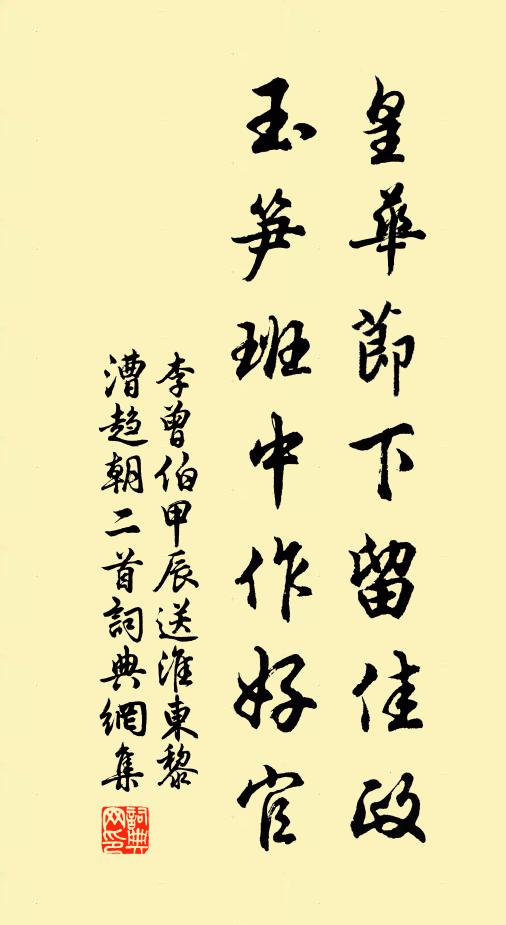 皇華節下留佳政
玉笋班中作好官
李曾伯甲辰送淮東黎
漕趋朝二首詞典網集
詞典網印